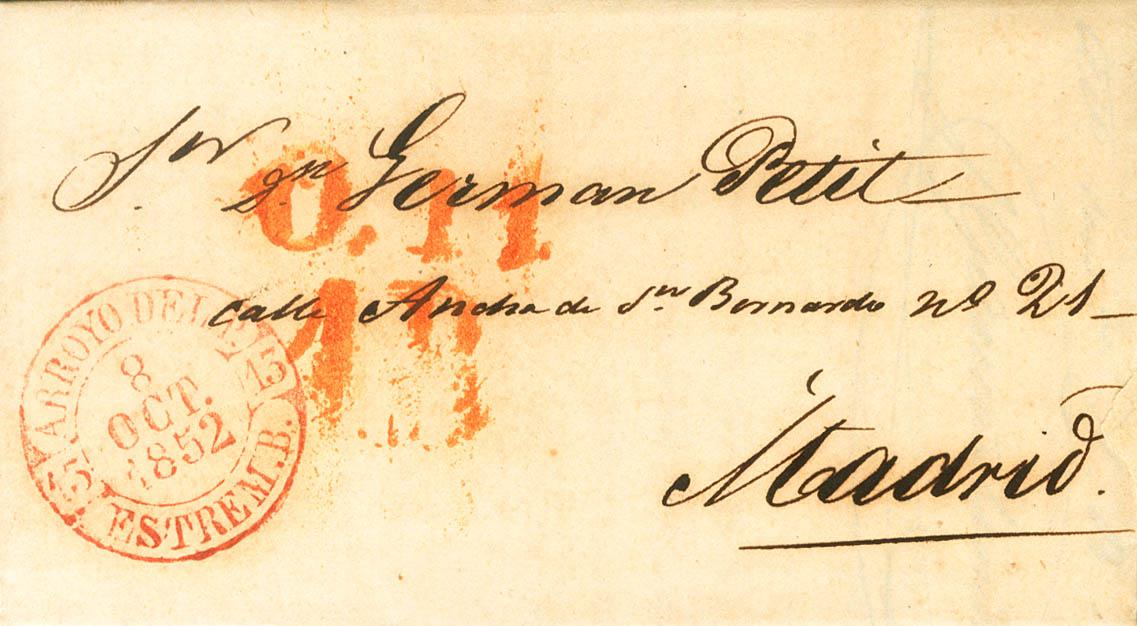 Sor. Dn. German Petit
calle Ancha de Sn. Bernardo nº 21
Madrid.
ARROYO DEL P. 13
8
OCT.
1852
ESTREM. B.